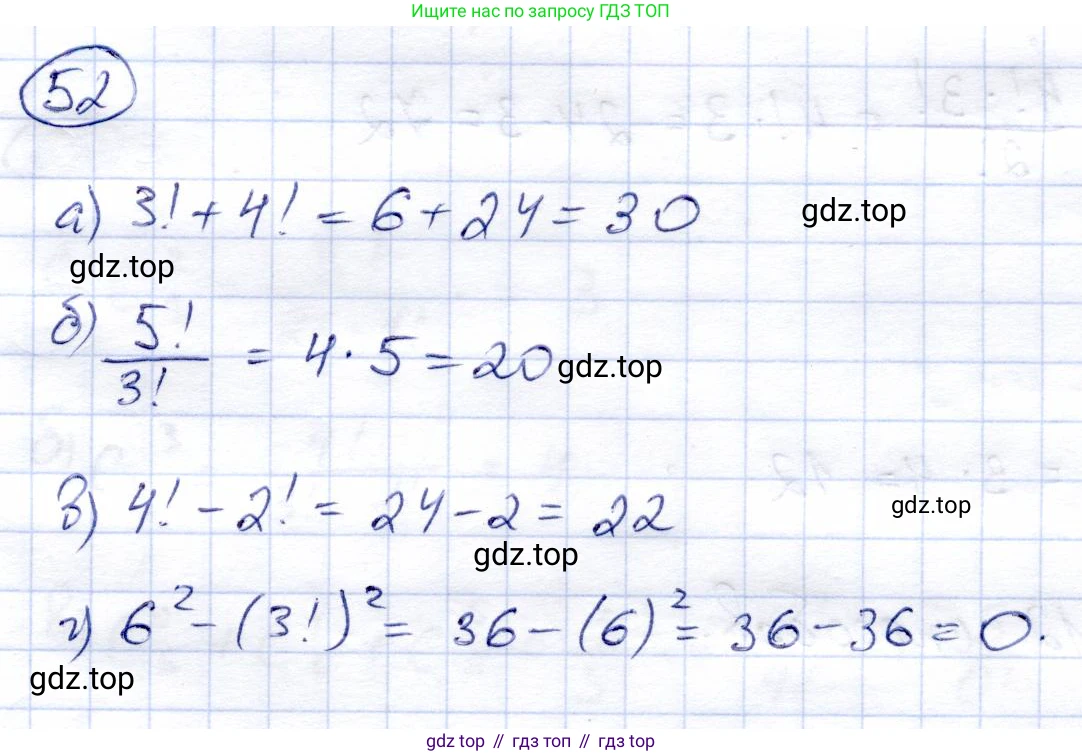 Ищите нас по запросу ГДЗ ТОП
52
а) 3! + 4! = 6 + 24 = 30
gdz.top
gdz.top
б) 5!/3! = 4 · 5 = 20
gdz.top
в) 4! - 2! = 24 - 2 = 22
gdz.top
gdz.top
г) 6² - (3!)² = 36 - (6)² = 36 - 36 = 0.
gdz.top
gdz.top // гдз топ // gdz top